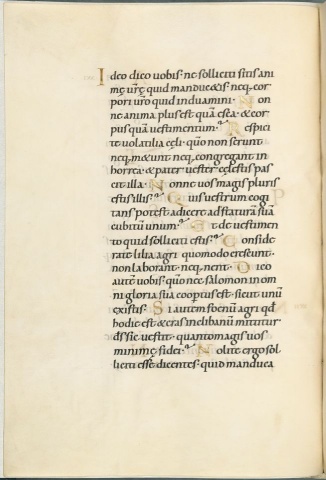 Ideo dico uobis· ne solliciti sitis ani
mę urę quid manducetis· neq; cor
pori uro quid induamini· Non
ne anima plus est quā esca· & cor
pus quā uestimentum· Respici
te uolatilia cęli· quō non serunt
neq; metunt neq; congregant in
horrea· & pater uester cęlestis pas
cit illa· Nonne uos magis pluris
estis illis· Quis uestrum cogi
tans potest adicere ad staturā suā
cubitū unum· Et de uestimen
to quid solliciti estis· Conside
rate lilia agri quomodo crescunt·
non laborant· neq; nent· Dico
autē uobis· quō nec salomon in om
ni gloria sua coopertus est· sicut unū
ex istis· Si autem foenū agri qd
hodie est & cras in clibanū mittitur
ds sic uestit· quanto magis uos
minimę fidei· Nolite ergo sol
liciti esse dicentes· quid manduca